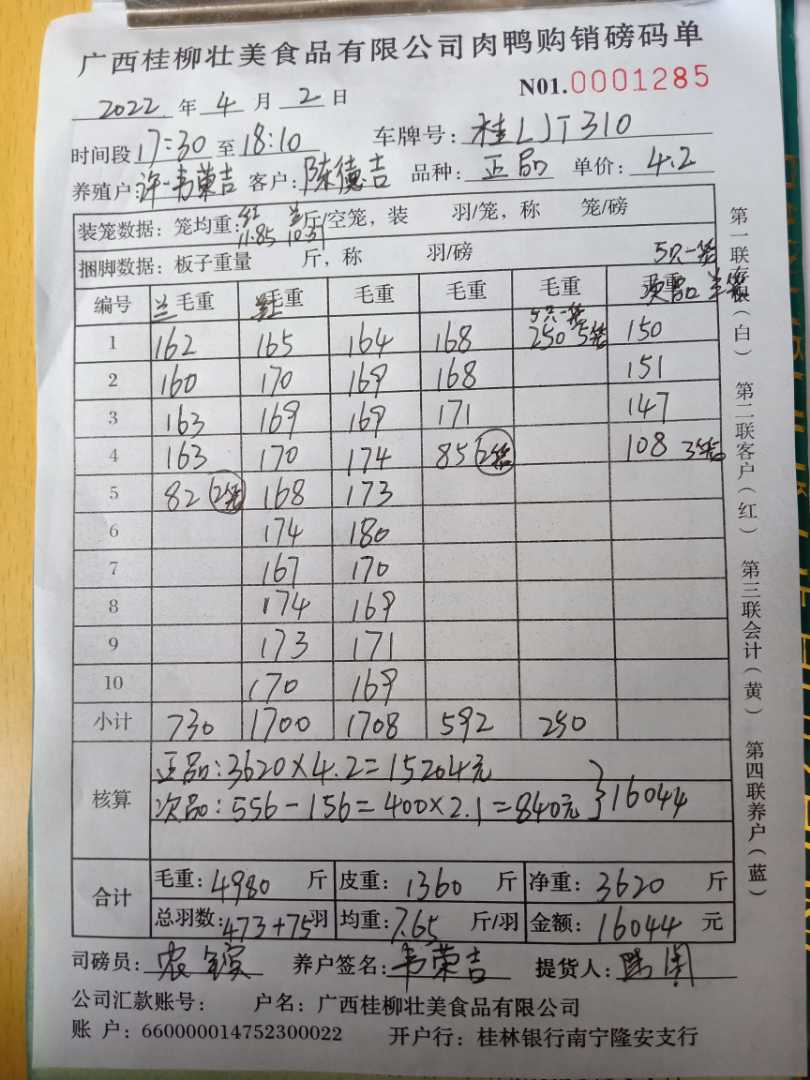 广西桂柳壮美食品有限公司肉鸭购销磅码单
N01.0001285
2022 年 4 月 2 日
时间段 17:30 至 18:10 车牌号: 桂LJT310
养殖户: 许-韦荣吉 客户: 陈德吉 品种: 正品 单价: 4.2
装笼数据: 笼均重: 红 11.85 兰 10.51 斤/空笼, 装 羽/笼, 称 笼/磅
捆脚数据: 板子重量 斤, 称 羽/磅 5只一笼
编号 兰 毛重 红 毛重 毛重 毛重 毛重 毛重 次品
1 162 165 164 168 5只一笼 250 5笼 150
2 160 170 169 168 151
3 163 169 169 171 147
4 163 170 174 85 (2笼) 108 3笼
5 82 (2笼) 168 173
6 174 180
7 167 170
8 174 169
9 173 171
10 170 169
小计 730 1700 1708 592 250
核算 正品:3620×4.2=15204元
次品:556-156=400×2.1=840元 }16044
合计 毛重: 4980 斤 皮重: 1360 斤 净重: 3620 斤
总羽数: 473+75 羽 均重: 7.65 斤/羽 金额: 16044 元
司磅员: 养户签名: 韦荣吉 提货人:
公司汇款账号: 户名: 广西桂柳壮美食品有限公司
账 户: 660000014752300022 开户行: 桂林银行南宁隆安支行
第一联存根(白) 第二联客户(红) 第三联会计(黄) 第四联养户(蓝)